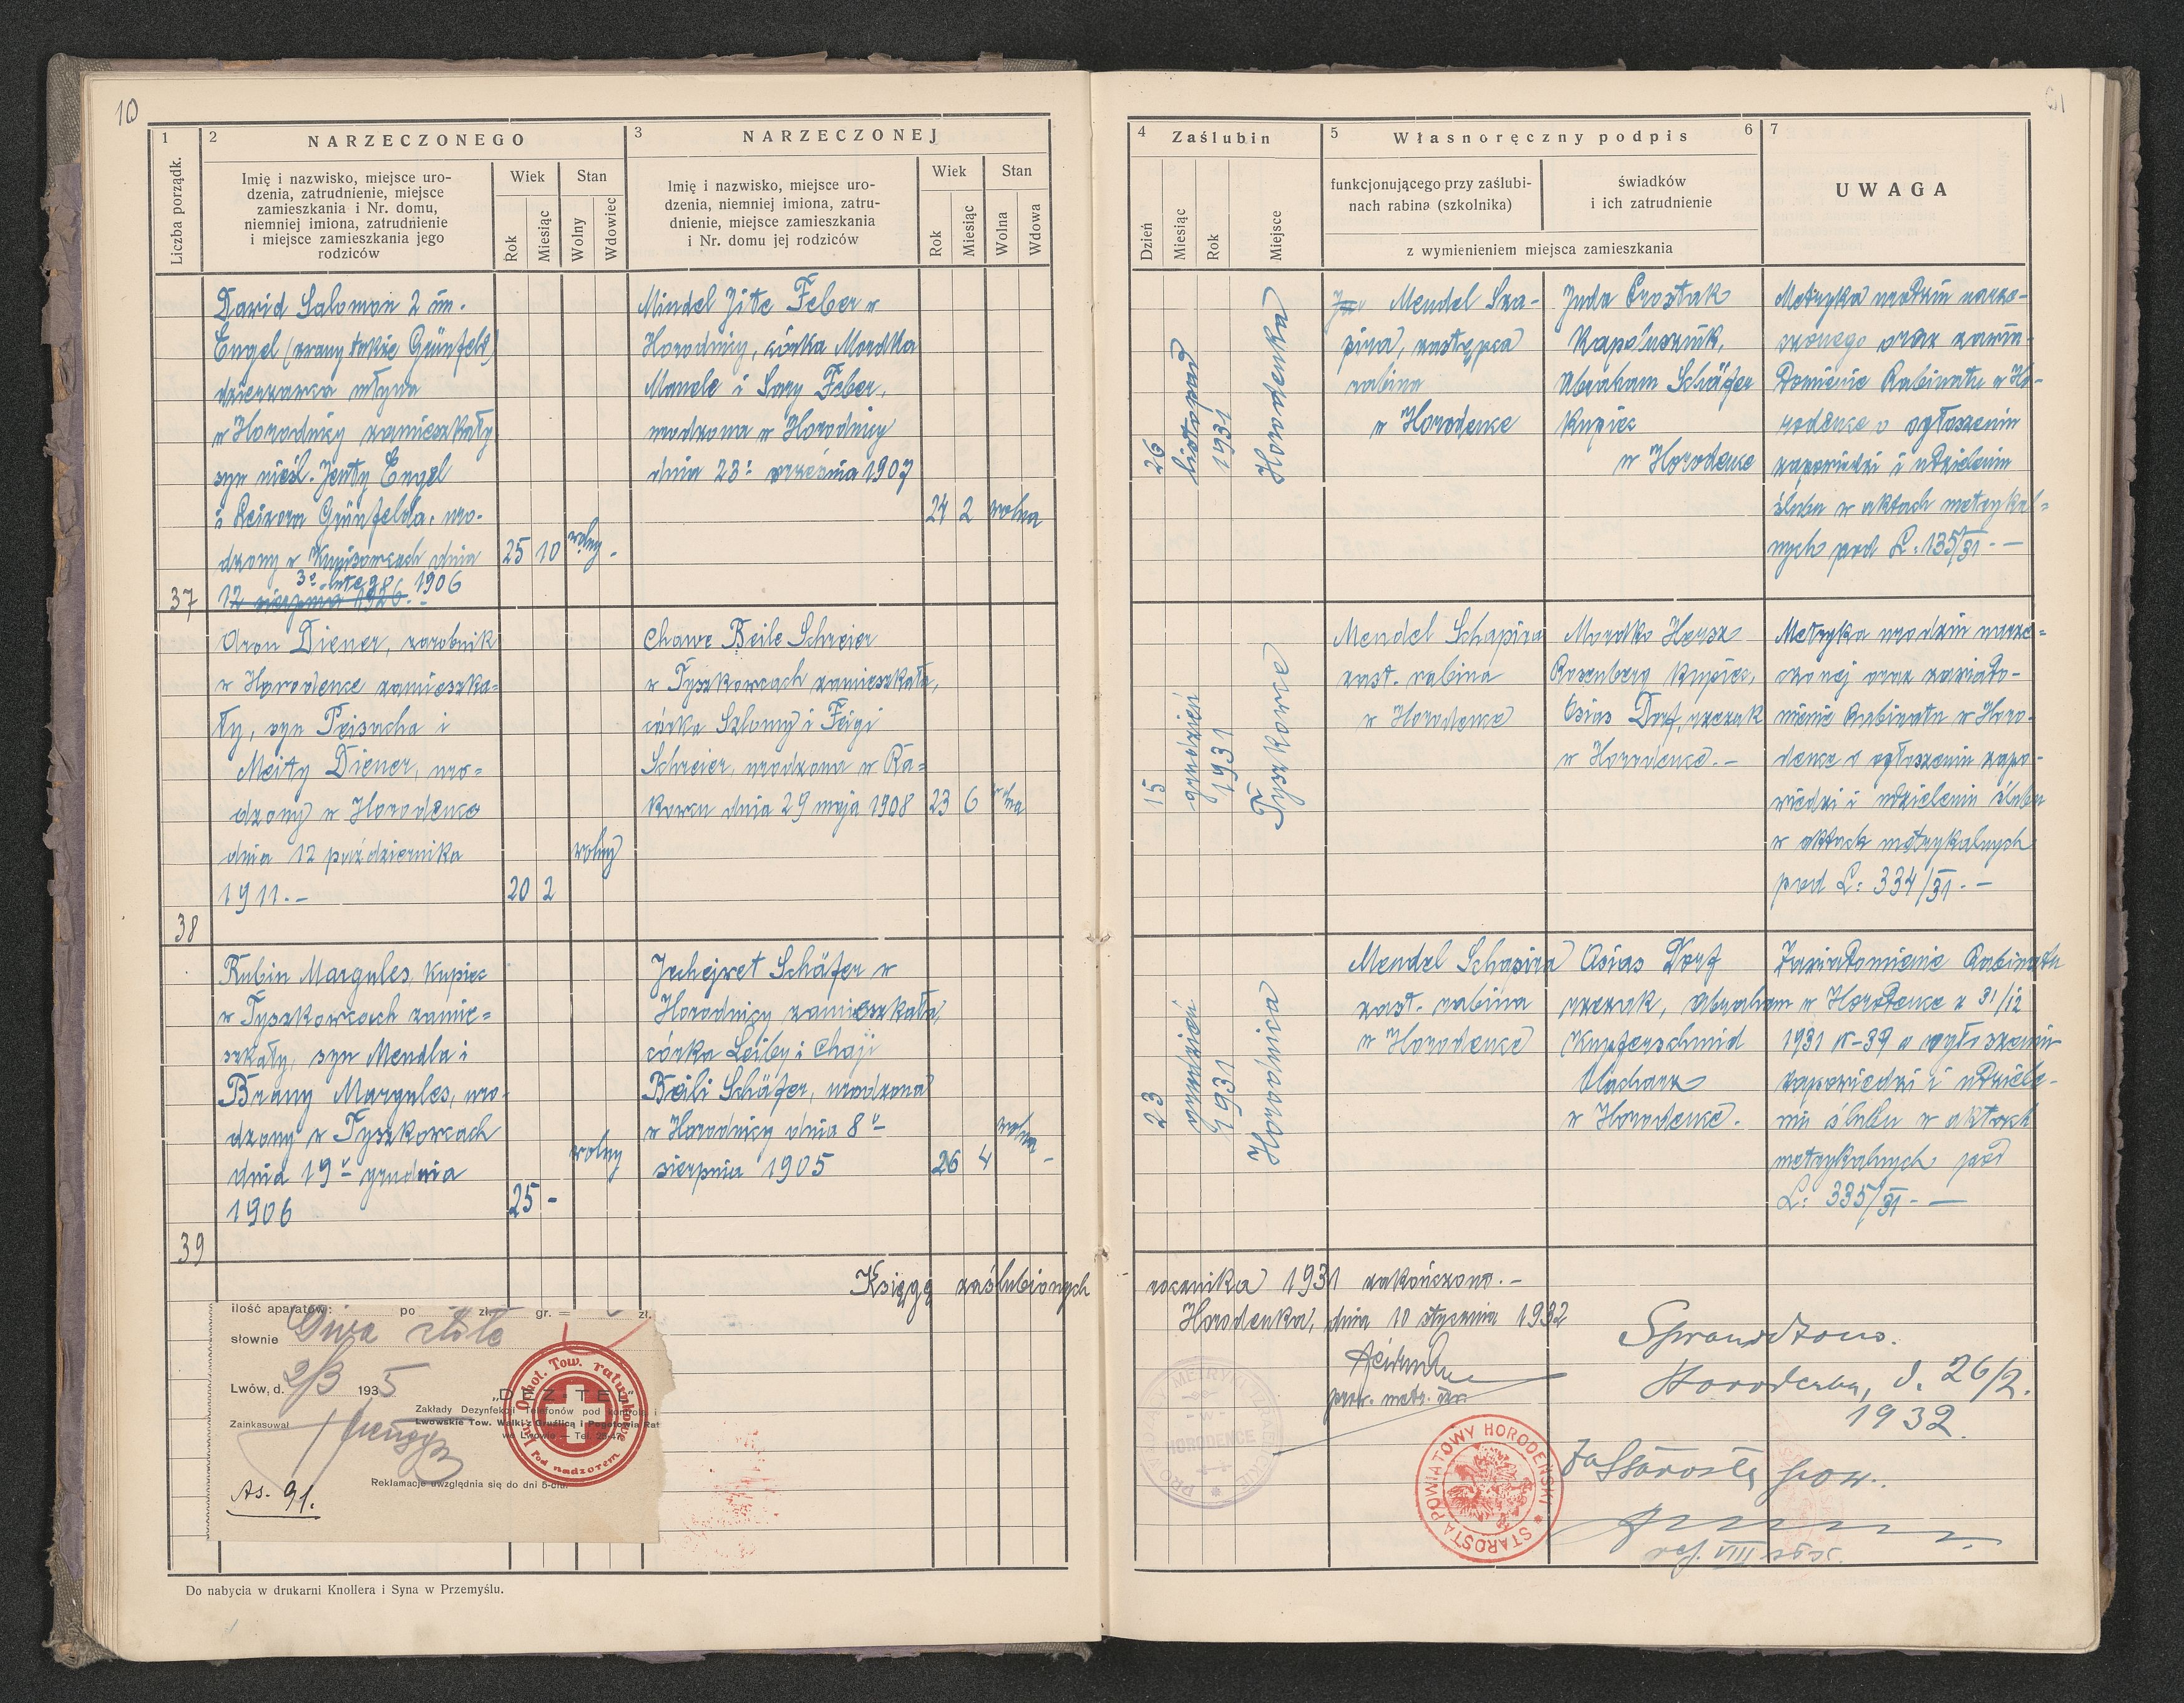 10
1
2
NARZECZONEGO
3
NARZECZONEJ
Liczba porządk.
Imię i nazwisko, miejsce uro-
dzenia, zatrudnienie, miejsce
zamieszkania i Nr. domu,
niemniej imiona, zatrudnienie
i miejsce zamieszkania jego
rodziców
Wiek
Stan
Rok
Miesiąc
Wolny
Wdowiec
Imię i nazwisko, miejsce uro-
dzenia, niemniej imiona, zatru-
dnienie, miejsce zamieszkania
i Nr. domu jej rodziców
Wiek
Stan
Rok
Miesiąc
Wolna
Wdowa
David Salomon 2 im.
Engel (zwany także Grünfeld)
dzierżawca młyna
w Horodnicy zamieszkały
syn nieśl. Jenty Engel
i Leizora Grünfelda, uro-
dzony w dnia
3º lutego 1906
12 sierpnia 1926.
25 10 wolny.
37
Mindel Jite Feber w
Horodnicy, córka Mordka
Manele i Sary Feber,
urodzona w Horodnicy
dnia 23º września 1907
24 2 wolna
Aron Diener, zarobnik
w Horodence zamieszka-
ły, syn Peisacha i
Meity Diener, uro-
dzony w Horodence
dnia 12 października
1911.-
20 2 wolny
38
Chawe Beile Schreier
w Tyszkowcach zamieszkała,
córka Szlomy i Feigi
Schreier, urodzona w Ra-
kowcu dnia 29 maja 1908
23 6 wolna
Rubin Margules, kupiec
w Tyszkowcach zamie-
szkały, syn Mendla i
Brany Margules, uro-
dzony w Tyszkowcach
dnia 19º grudnia
1906
25 - wolny
39
Jochejwet Schäfer w
Horodnicy zamieszkała,
córka Leiby i Chaji
Beili Schäfer, urodzona
w Horodnicy dnia 8º
sierpnia 1905
26 4 wolna -
Księgę zaślubionych
ilość aparatów: po zł. gr. = zł.
słownie Dwa złote
Lwów, d. 2/3 1935
Zainkasował
„DEZ-TEL"
Zakłady Dezynfekcji Telefonów pod kontrolą i
Lwowskie Tow. Walki z Gruźlicą i Pogotowia Rat
we Lwowie — Tel. 29-47
Ochot. Tow. ratunkowe
pod nadzorem
Reklamacje uwzględnia się do dni 5-ciu.
As. 91.
Do nabycia w drukarni Knollera i Syna w Przemyślu.
4
Zaślubin
5
Własnoręczny podpis
6
7
Dzień
Miesiąc
Rok
Miejsce
funkcjonującego przy zaślubi-
nach rabina (szkolnika)
świadków
i ich zatrudnienie
z wymienieniem miejsca zamieszkania
UWAGA
26
listopad
1931
Horodenka
Mendel Sza-
pira, zastępca
rabina
w Horodence
Juda Crostak
Kapelusznik,
Abraham Schäfer
kupiec
w Horodence
Metryka urodzin narze-
czonego oraz zawia-
domienie Rabinatu w Ho-
rodence o ogłoszeniu
zapowiedzi i udzieleniu
ślubu w aktach metrykal-
nych pod L: 135/31.-
15
grudzień
1931
Tyszkowce
Mendel Schapira
zast. rabina
w Horodence
Mordko Hersz
Rosenberg kupiec,
Osias Dorf, rzezak
w Horodence.-
Metryka urodzin narze-
czonej oraz zawiado-
mienie Rabinatu w Horo-
dence o ogłoszeniu zapo-
wiedzi i udzieleniu ślubu
w aktach metrykalnych
pod L: 334/31.-
23
grudzień
1931
Horodnica
Mendel Schapira
zast. rabina
w Horodence
Osias Dorf
rzezak, Abraham
Kupferschmid
blacharz
w Horodence.
Zawiadomienie Rabinatu
w Horodence z 31/12
1931 N-39 o ogłoszeniu
zapowiedzi i udziele-
niu ślubu w aktach
metrykalnych pod
L: 335/31.-
rocznika 1931 zakończono.-
Horodenka, dnia 10 stycznia 1932
prow. metr. izr.
HORODENCE
STAROSTA POWIATOWY HORODEŃSKI
Sprawdzono.
Horodenka, d. 26/2.
1932.
Za Starostę pow.
ref. VIII